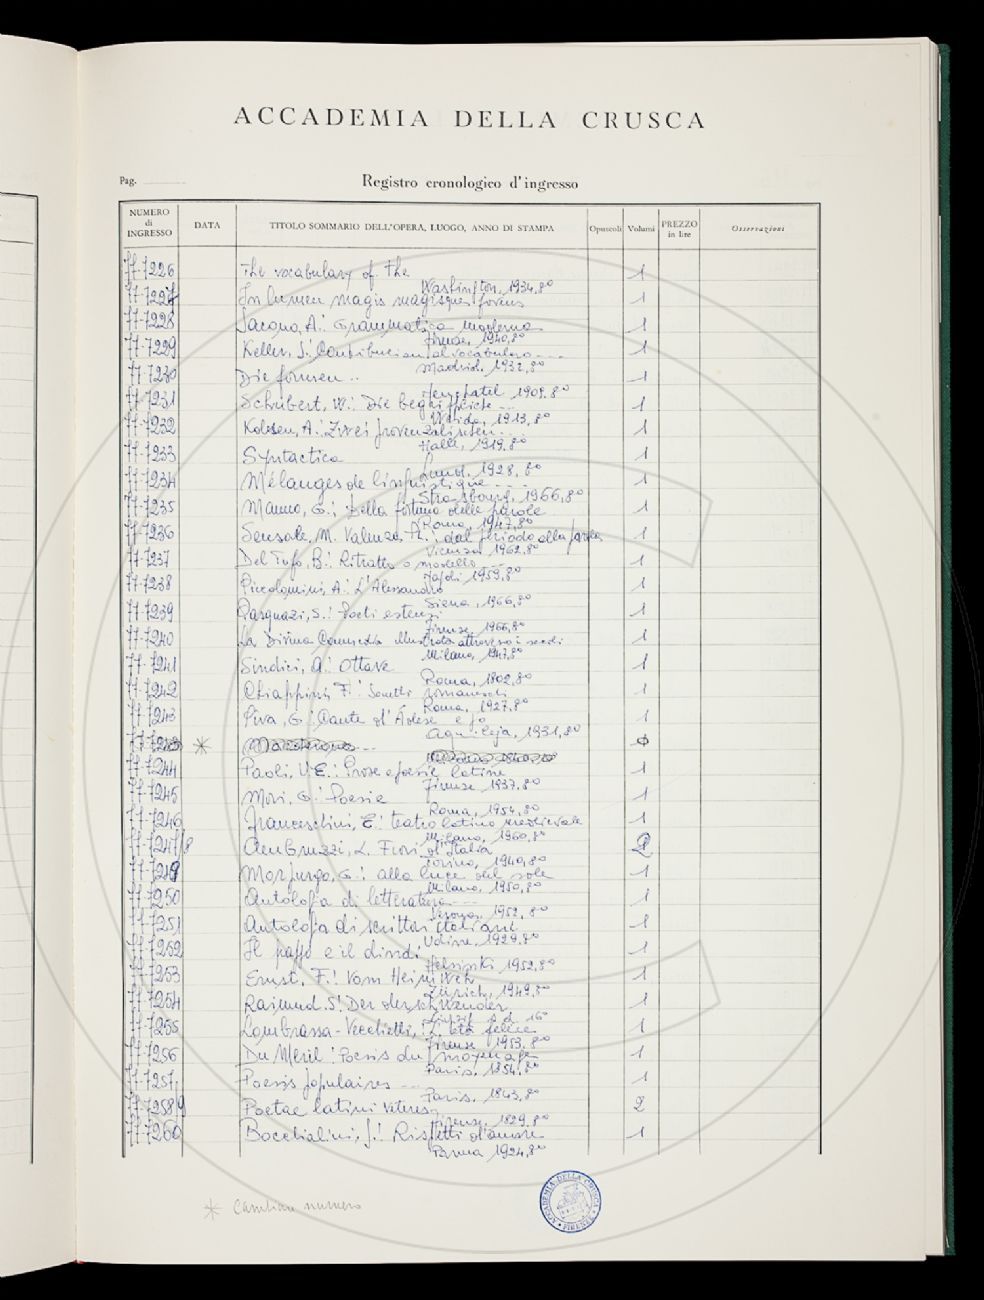 ACCADEMIA DELLA CRUSCA
Pag.
Registro cronologico d'ingresso
NUMERO di INGRESSO DATA TITOLO SOMMARIO DELL'OPERA, LUOGO, ANNO DI STAMPA Opuscoli Volumi PREZZO in lire Osservazioni
77-7226 The vocabulary of the 1
Washington, 1934, 8°
77-7227 In lumen magis magisque 1
77-7228 Jacono, A.: Grammatica moderna 1
Firenze, 1940, 8°
77-7229 Keller, J.: Contribucion al vocabulario --- 1
Madrid, 1932, 8°
77-7230 Die formen .. 1
1909, 8°
77-7231 Schubert, W.: Die 1
Weida, 1913, 8°
77-7232 Kolsen, A.: Zwei provenzalischen 1
Halle, 1919, 8°
77-7233 Syntactica 1
Lund, 1928, 8°
77-7234 Mélanges de linguistique --- 1
Strasbourg, 1966, 8°
77-7235 Manno, G.: Della fortuna delle parole 1
Roma, 1947, 8°
77-7236 Sensale, M. Valenza, A.: dal periodo alla parola 1
Vicenza 1962, 8°
77-7237 Del Tufo, B.: Ritratto o modello 1
Napoli 1959, 8°
77-7238 Piccolomini, A.: L'Alessandro 1
Siena, 1966, 8°
77-7239 Pasquazi, S.: Poeti estensi 1
Firenze, 1966, 8°
77-7240 La Divina Commedia illustrata attraverso i secoli 1
Milano, 1947, 8°
77-7241 Sindici, A.: Ottave 1
Roma, 1902, 8°
77-7242 Chiappini, F.: Sonetti romaneschi 1
Roma, 1927, 8°
77-7243 Piva, G.: Dante 1
Aquileja, 1931, 8°
*
77-7244 Paoli, U.E.: Prose e poesie latine 1
Firenze 1937, 8°
77-7245 Mori, G.: Poesie 1
Roma, 1954, 8°
77-7246 Franceschini, E.: teatro latino medievale 1
Milano, 1960, 8°
77-7247/8 L. Fiori d'Italia 2
Torino, 1940, 8°
77-7249 Morpurgo, G.: alla luce del sole 1
Milano, 1950, 8°
77-7250 Antologia di letteratura --- 1
Verona, 1952, 8°
77-7251 Antologia di scrittori italiani 1
Udine, 1929, 8°
77-7252 Il 1
Helsinki 1952, 8°
77-7253 Ernst, F.: Vom Heimweh 1
Zürich, 1949, 8°
77-7254 Raimund 1
77-7255 Lombrassa-Vecchietti, L'età felice 1
Firenze 1953, 8°
77-7256 Du Méril: Poésis du moyen age 1
Paris, 1854, 8°
77-7257 Poesis populaires --- 1
Paris, 1843, 8°
77-7258/9 Poetae latini veteres 2
Firenze, 1829, 8°
77-7260 Bocchialini, J.: Rispetti d'amore 1
Parma 1924, 8°
* Cambiare numero
ACCADEMIA DELLA CRUSCA • FIRENZE •